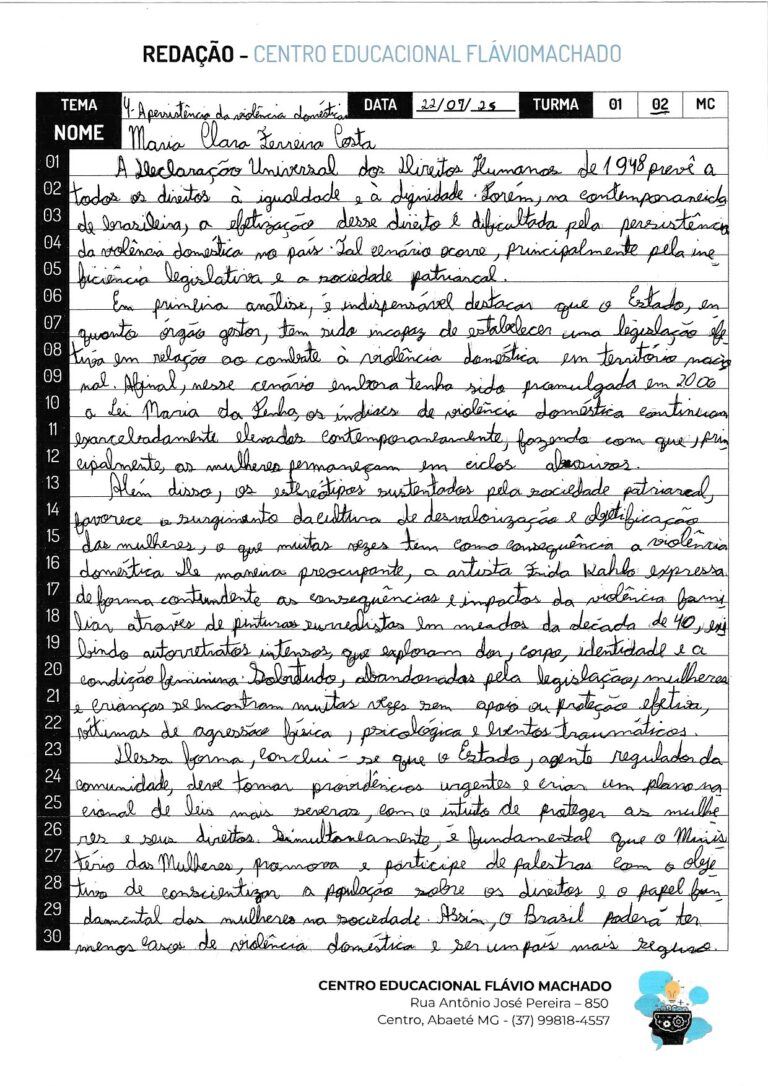 REDAÇÃO - CENTRO EDUCACIONAL FLÁVIOMACHADO
TEMA 4- A persistência da violência doméstica DATA 22/07/25 TURMA 01 02 MC
NOME Maria Clara Ferreira Costa
01 A Declaração Universal dos Direitos Humanos de 1948 prevê a
02 todos os direitos à igualdade e à dignidade. Porém, na contemporaneida
03 de brasileira, a efetização desse direito é dificultada pela persistência
04 da violência doméstica no país. Tal cenário ocorre, principalmente pela ine
05 ficiência legislativa e a sociedade patriarcal.
06 Em primeira análise, é indispensável destacar que o Estado, en
07 quanto órgão gestor, tem sido incapaz de estabelecer uma legislação efe
08 tiva em relação ao combate à violência doméstica em território nacio
09 nal. Afinal, nesse cenário embora tenha sido promulgada em 2006
10 a Lei Maria da Penha, os índices de violência doméstica continuam
11 exarcebadamente elevados contemporaneamente, fazendo com que, prin
12 cipalmente, as mulheres permaneçam em ciclos abusivos.
13 Além disso, os estereótipos sustentados pela sociedade patriarcal,
14 favorece o surgimento da cultura de desvalorização e objetificação
15 das mulheres, o que muitas vezes tem como consequência a violência
16 doméstica. De maneira preocupante, a artista Frida Kahlo expressa
17 de forma contundente as consequências e impactos da violência fami
18 liar através de pinturas surrealistas em meados da década de 40, exi
19 bindo autorretratos intensos, que exploram dor, corpo, identidade e a
20 condição feminina. Sobretudo, abandonadas pela legislação, mulheres
21 e crianças se encontram muitas vezes sem apoio ou proteção efetiva,
22 vítimas de agressão física, psicológica e eventos traumáticos.
23 Dessa forma, conclui-se que o Estado, agente regulador da
24 comunidade, deve tomar providências urgentes e criar um plano na
25 cional de leis mais severas, com o intuito de proteger as mulhe
26 res e seus direitos. Simultaneamente, é fundamental que o Minis
27 tério das Mulheres, promova e participe de palestras com o obje
28 tivo de conscientizar a população sobre os direitos e o papel fun
29 damental das mulheres na sociedade. Assim, o Brasil poderá ter
30 menos casos de violência doméstica e ser um país mais seguro.
CENTRO EDUCACIONAL FLÁVIO MACHADO
Rua Antônio José Pereira – 850
Centro, Abaeté MG - (37) 99818-4557